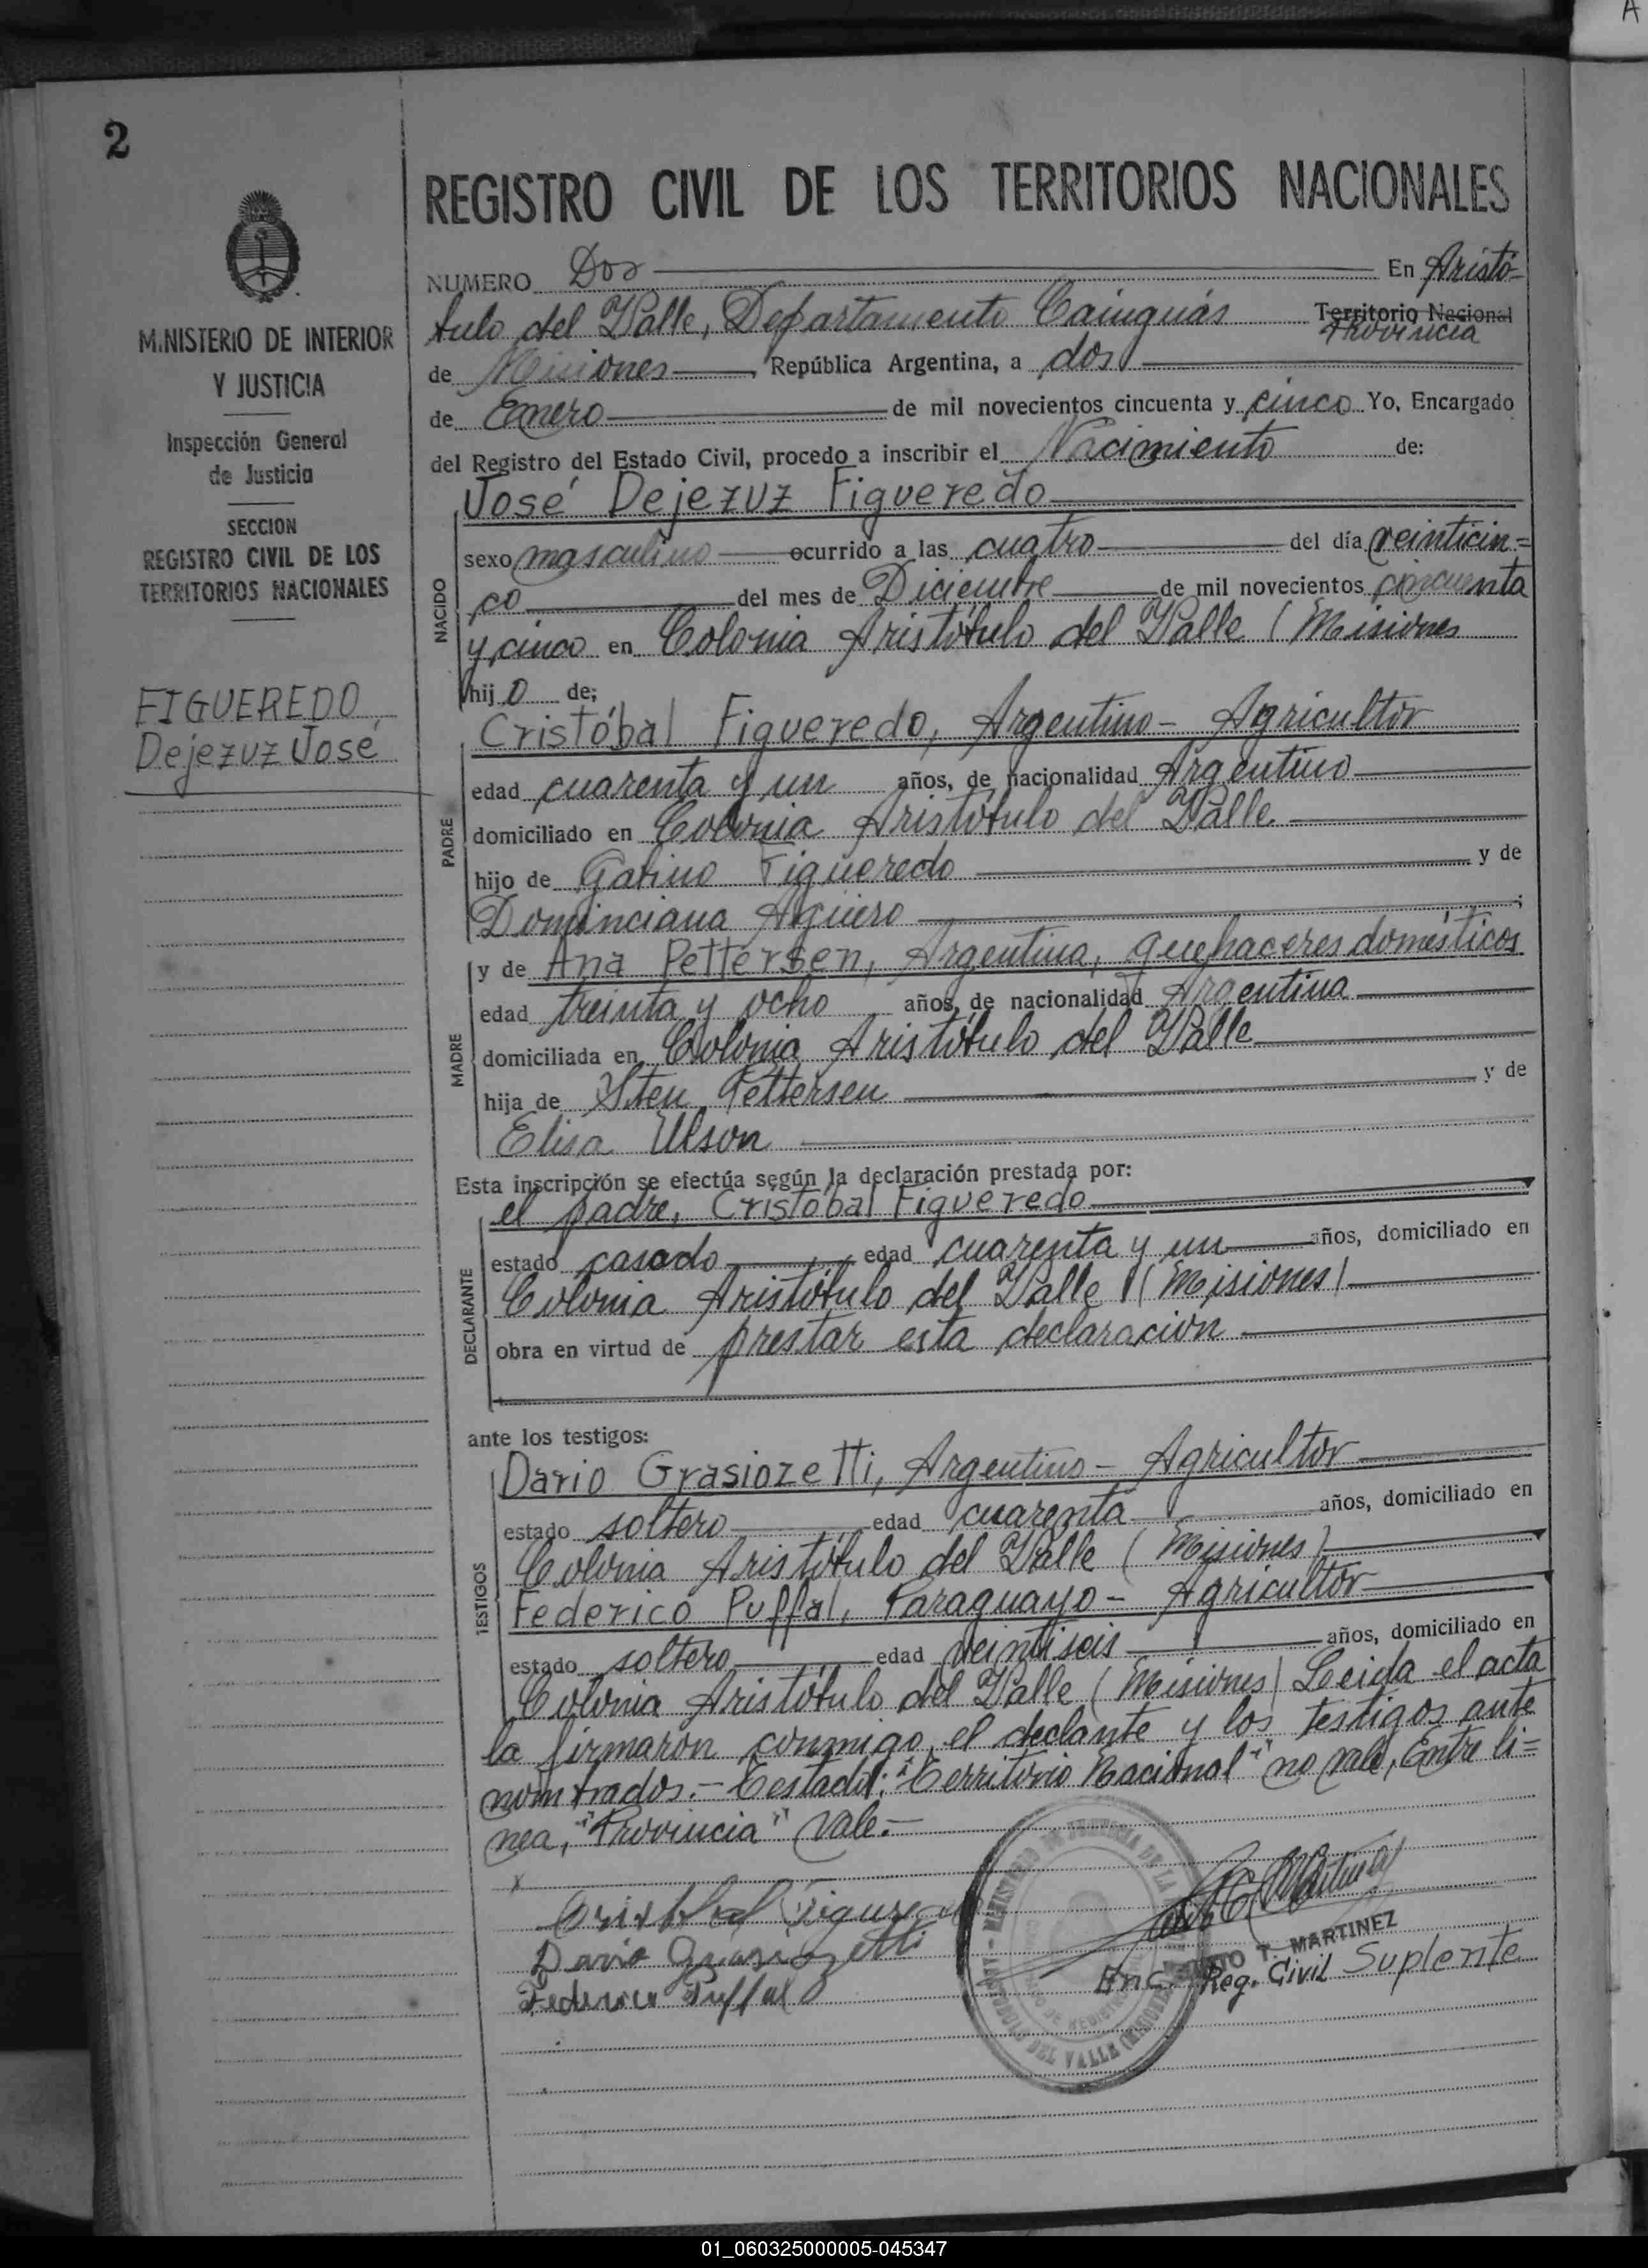 2
REGISTRO CIVIL DE LOS TERRITORIOS NACIONALES
MINISTERIO DE INTERIOR
Y JUSTICIA
Inspección General
de Justicia
SECCION
REGISTRO CIVIL DE LOS
TERRITORIOS NACIONALES
FIGUEREDO,
Dejezuz José
NUMERO Dos En Aristó-
tulo del Valle, Departamento Cainguás Territorio Nacional
Provincia
de Misiones, República Argentina, a dos
de Enero de mil novecientos cincuenta y cinco Yo, Encargado
del Registro del Estado Civil, procedo a inscribir el Nacimiento de:
José Dejezuz Figueredo
NACIDO
sexo masculino ocurrido a las cuatro del día veinticin=
co del mes de Diciembre de mil novecientos cincuenta
y cinco en Colonia Aristótulo del Valle (Misiones
hijo de;
PADRE
Cristóbal Figueredo, Argentino - Agricultor
edad cuarenta y un años, de nacionalidad Argentino
domiciliado en Colonia Aristótulo del Valle.
hijo de Gabino Figueredo y de
Dominciana Agüero;
MADRE
y de Ana Pettersen, Argentina, quehaceres domésticos
edad treinta y ocho años, de nacionalidad Argentina
domiciliada en Colonia Aristótulo del Valle
hija de Sten Pettersen y de
Elisa Ulson
Esta inscripción se efectúa según la declaración prestada por:
DECLARANTE
el padre, Cristóbal Figueredo
estado casado edad cuarenta y un años, domiciliado en
Colonia Aristótulo del Valle (Misiones)
obra en virtud de prestar esta declaracion
ante los testigos:
TESTIGOS
Dario Grasiozetti, Argentino - Agricultor
estado soltero edad cuarenta años, domiciliado en
Colonia Aristótulo del Valle (Misiones)
Federico Puffal, Paraguayo - Agricultor
estado soltero edad veintiseis años, domiciliado en
Colonia Aristótulo del Valle (Misiones) Leida el acta
la firmaron conmigo, el declante y los testigos ante
nombrados.- Testado: "Territorio Nacional" no vale, Entre li=
nea, "Provincia" vale.-
Dario Grasiozetti
Federico Puffal
T. MARTINEZ
Enc. Reg. Civil Suplente
01_060325000005-045347